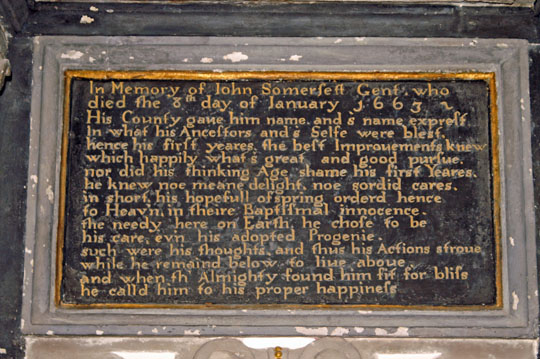 In Memory of Iohn Somersett Gent. who
died the 8th day of Ianuary 1663
His County gaue him name, and's name exprest
In what his Ancestors and's Selfe were blest.
hence his first yeares, the best Improuements knew
which happily what's great, and good pursue.
nor did his thinking Age, shame his first Yeares.
he knew noe meane delight, noe sordid cares.
in short, his hopefull ofspring, orderd hence
to Heavn, in theire Baptismal innocence.
the needy here on Earth, he chose to be
his care, evn his adopted Progenie.
such were his thoughts, and thus his Actions stroue
while he remaind below, to liue aboue.
and when th' Almighty found him fit for bliss
he call'd him to his proper happiness